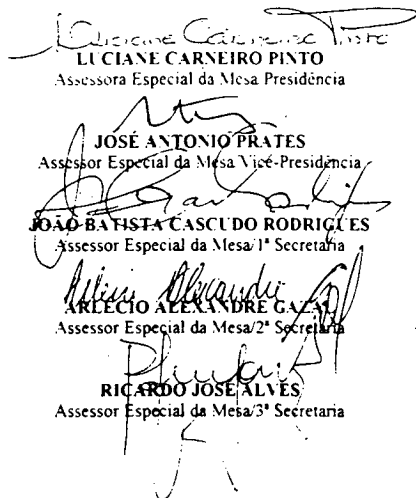 Luciane Carneiro Pinto
LUCIANE CARNEIRO PINTO
Assessora Especial da Mesa Presidência
JOSÉ ANTONIO PRATES
Assessor Especial da Mesa Vice-Presidência
JOÃO BATISTA CASCUDO RODRIGUES
Assessor Especial da Mesa/1ª Secretaria
Arlécio Alexandre
ARLÉCIO ALEXANDRE GAZAL
Assessor Especial da Mesa/2ª Secretaria
RICARDO JOSÉ ALVES
Assessor Especial da Mesa/3ª Secretaria